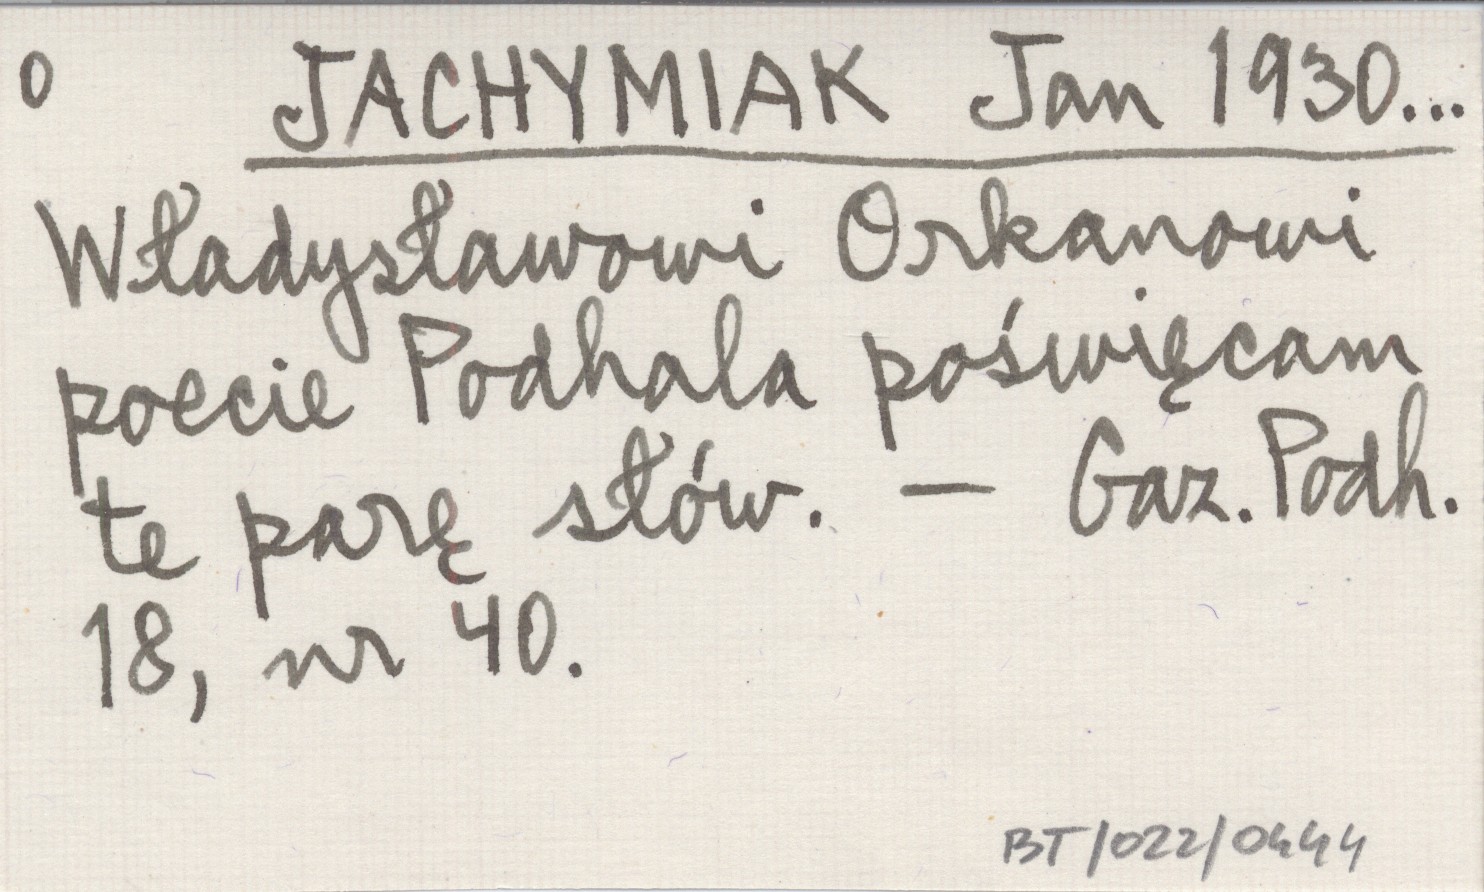 0 JACHYMIAK Jan 1930...
Władysławowi Orkanowi
poecie Podhala poświęcam
te parę słów. — Gaz. Podh.
18, nr 40.
BT/022/0444